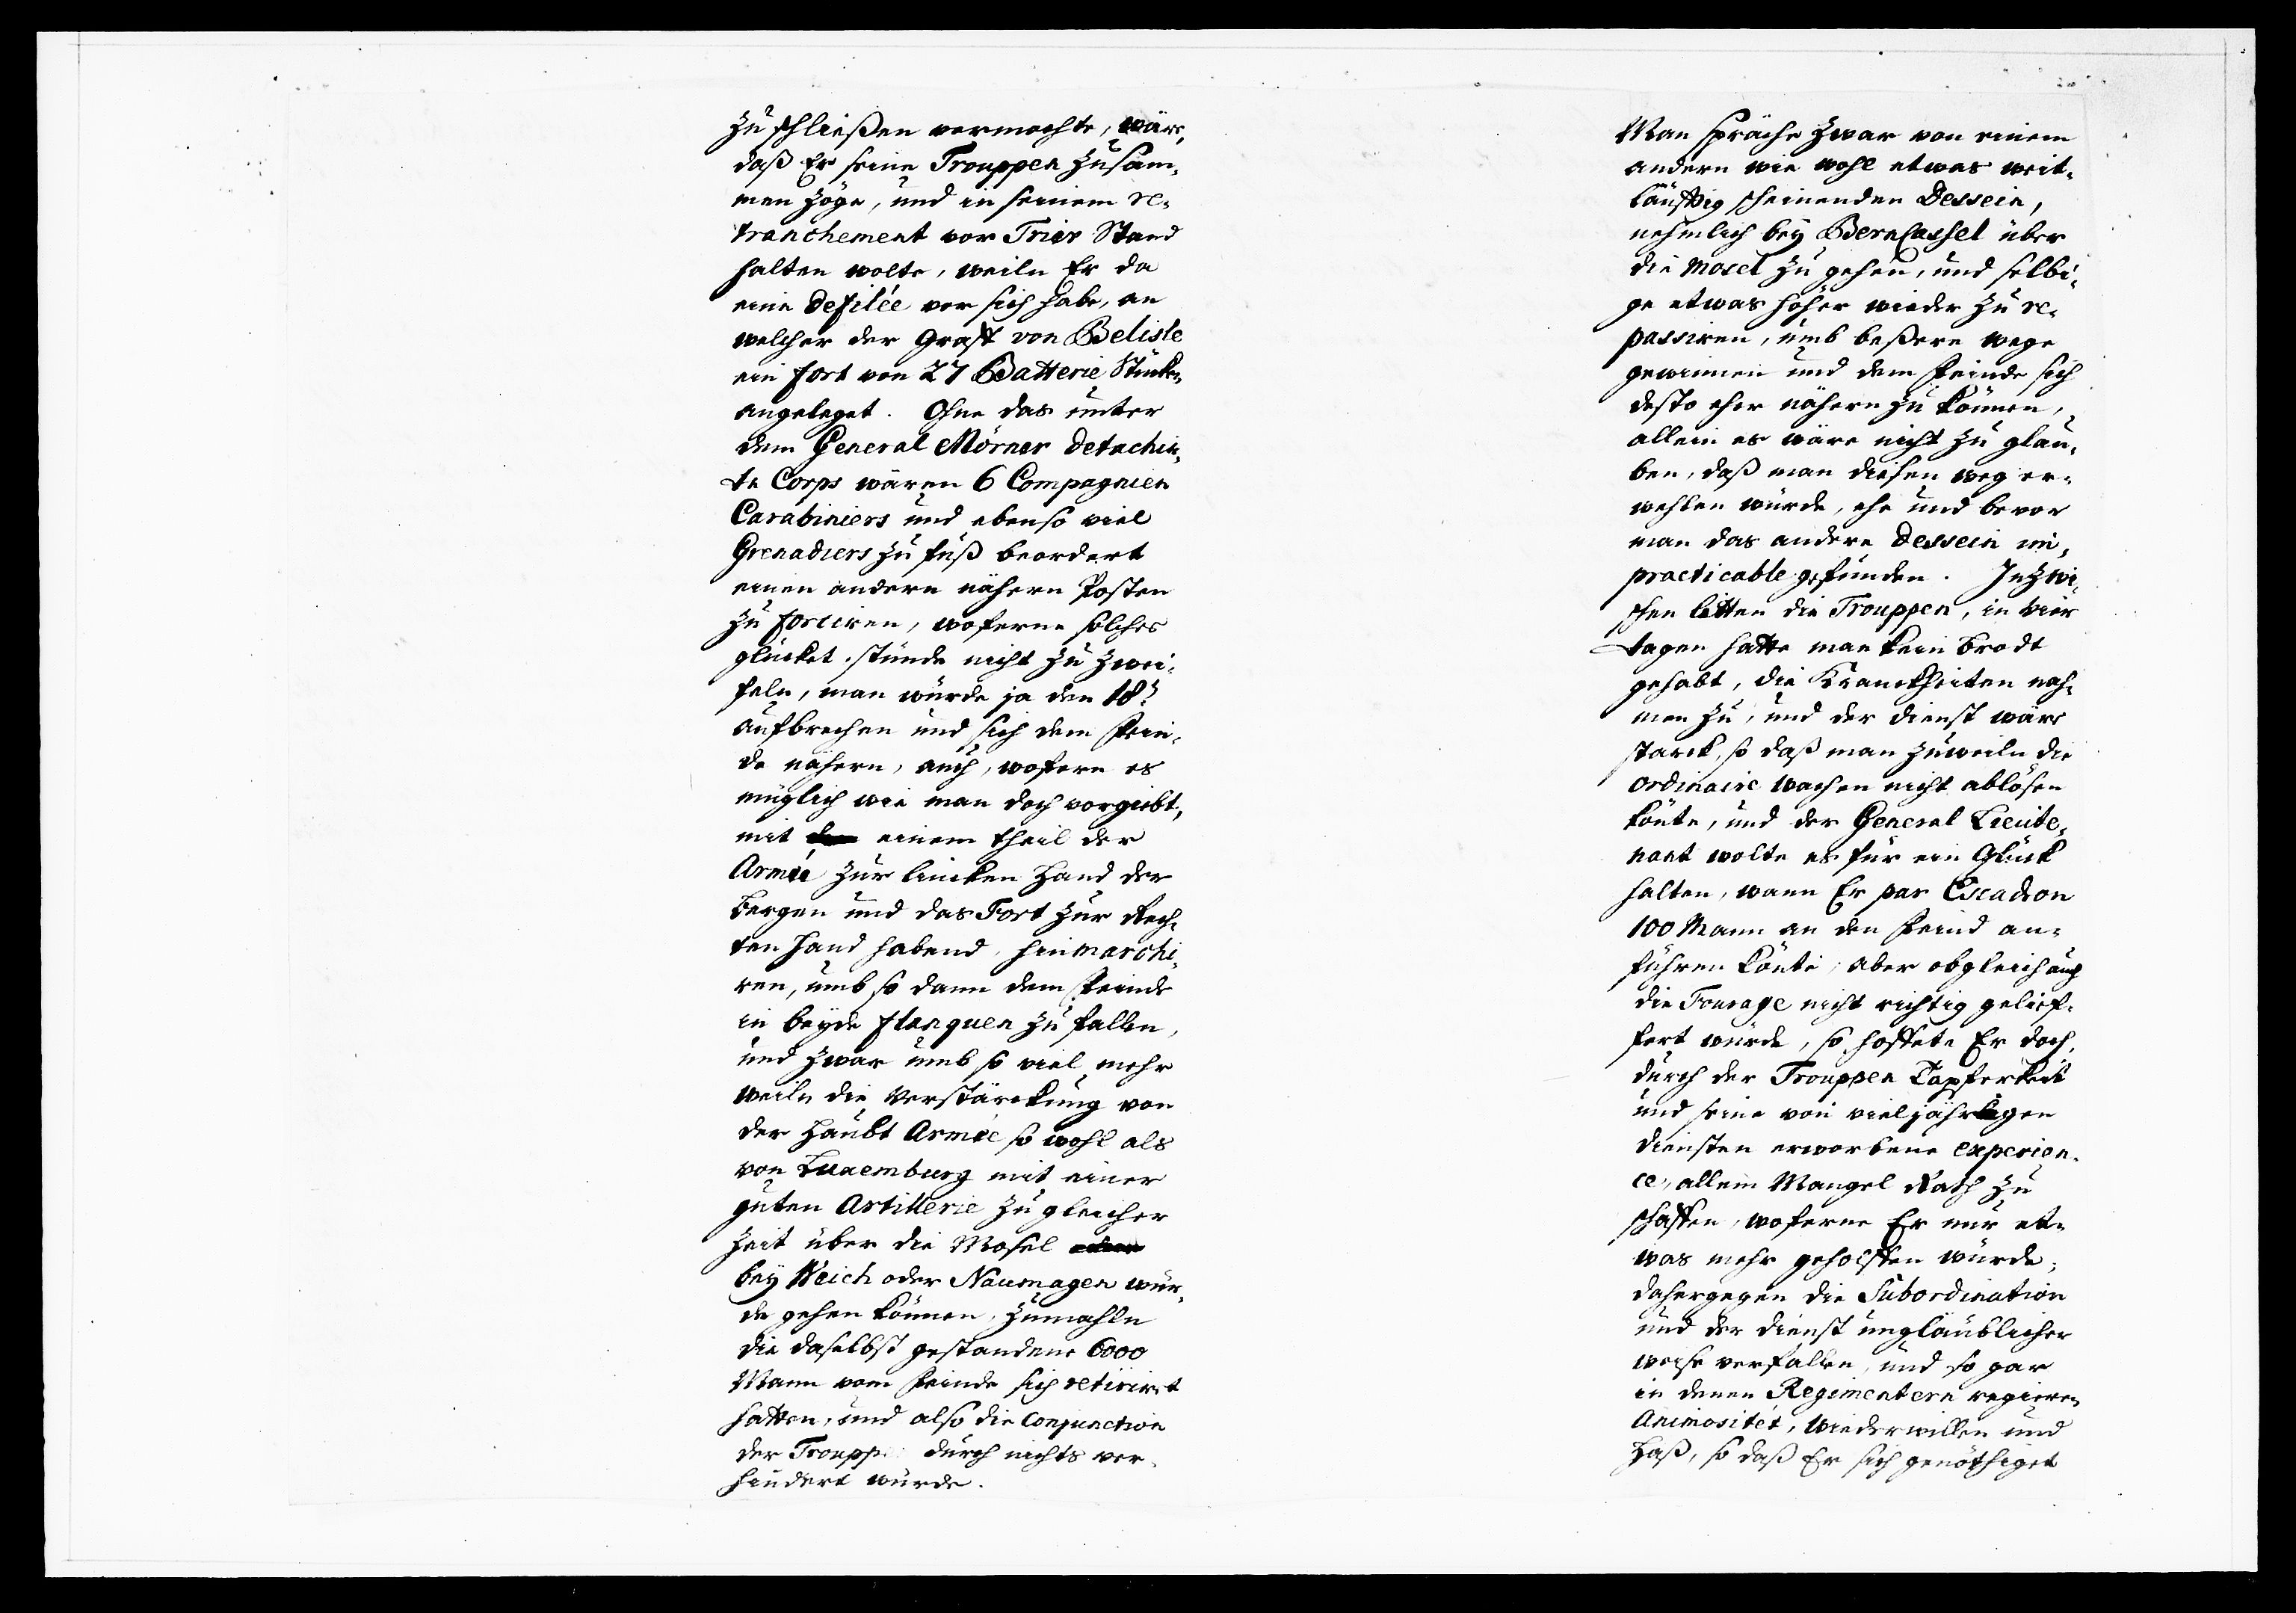 zu schließen vermochte, wäre,
daß Er seine Trouppen zusam-
men zöge, und in seinem re-
tranchement vor Trier Stand
halten wolte, weiln Er da
eine defilée vor sich habe, an
welcher der Graff von Belisle
ein fort von 27 Batterie Stücken
angeleget. Ohne das unter
dem General Mörner detachir-
te Corps wären 6 Compagnien
Carabiniers und ebenso viel
Grenadiers zu fuß beordert
einen andern nähern Posten
zu forciren, woferne solches
glücket, stünde nicht zu zwei-
feln, man würde ja den 18t
aufbrechen und sich dem Fein-
de nähern, auch, wofern es
müglich wie man doch vorgiebt,
mit einem theil der
Armée zur lincken Hand der
Bergen und das Fort zur Rech-
ten Hand habend, hinmarchi-
ren, umb so dann dem Feinde
in beyde flanquen zu fallen,
und zwar umb so viel mehr
weiln die Verstärckung von
der Haubt Armée so wohl als
von Luxemburg mit einer
guten Artillerie zu gleicher
Zeit über die Mosel
bey Reich oder Naumagen wür-
de gehen können, zumahln
die daselbst gestandene 6000
Mann vom Feinde sich retiriret
hatten, und also die Conjunction
der Troupp durch nichts ver-
hindert würde.
Man spräche zwar von einem
andern wie wohl etwas weit-
läufftig scheinenden Dessein,
nehmlich bey BernCassel über
die Mosel zu gehen, und selbi-
ge etwas höher wieder zu re-
passiren, umb beßere wege
gewinnen und dem Feinde sich
desto eher nähern zu können,
allein es wäre nicht zu glau-
ben, daß man diesen weg er-
wehlen würde, ehe und bevor
man das andere dessein im-
practicable gefunden. Inzwi-
schen litten die Trouppen, in vier
tagen hatte man kein Brodt
gehabt, die Kranckheiten nah-
men zu, und der dienst wäre
starck, so daß man zuweiln die
ordinaire wachen nicht ablösen
könte, und der General Lieute-
nant wolte es für ein Glück
halten, wann Er par Escadron
100 Mann an den Feind an-
führen könte; aber obgleich auch
die Fourage nicht richtig gelief-
fert würde, so hoffete Er doch,
durch der Trouppen Tapferkeit
und seine von vieljährigen
diensten erworbene experien-
ce, allem Mangel Rath zu
schaffen, woferne Er nur et-
was mehr geholffen würde,
dahergegen die Subordination
und der dienst unglaublicher
weise verfallen, und so gar
in denen Regimentern regieren
Animositét, wiederwillen und
Haß, so daß Er sich genöthiget